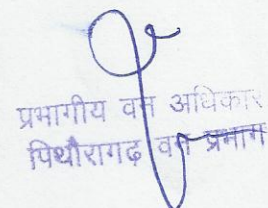 प्रभागीय वन अधिकार
पिथौरागढ़ वन प्रभाग